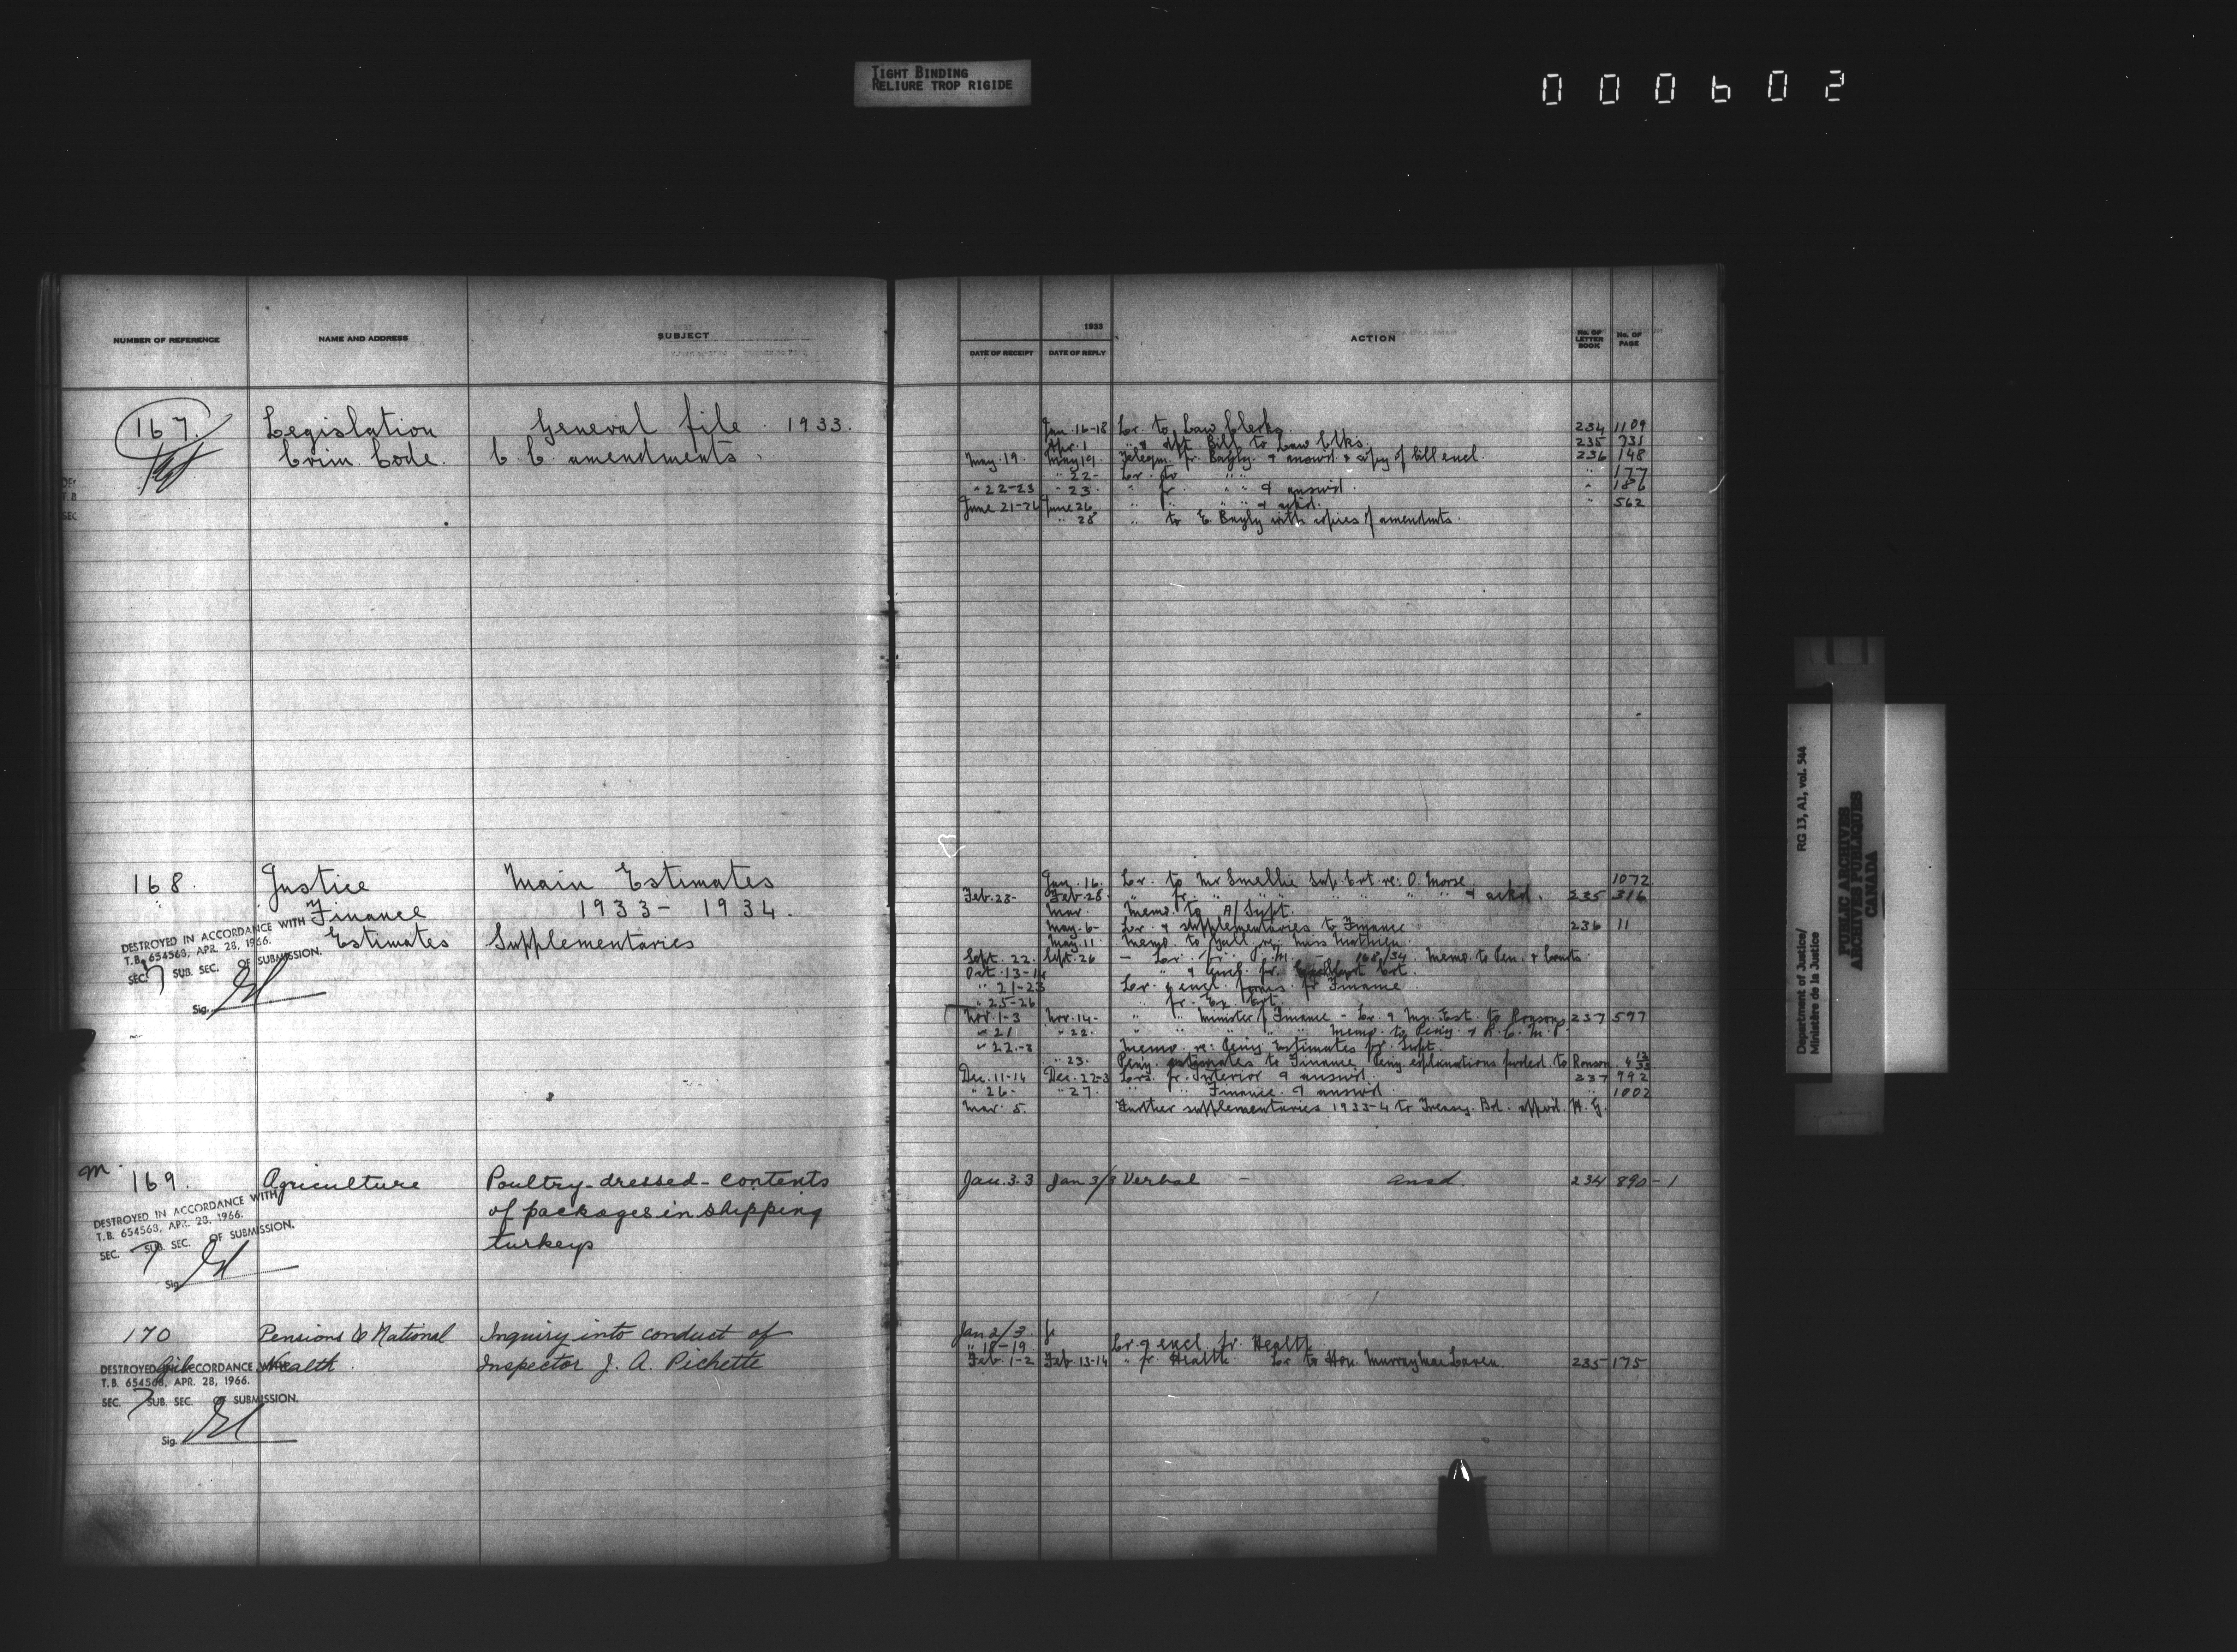 TIGHT BINDING
RELIURE TROP RIGIDE
000602
NUMBER OF REFERENCE NAME AND ADDRESS SUBJECT
167. Legislation General file 1933.
Crim. Code. C. C. amendments.
168. Justice Main Estimates
Finance 1933 - 1934.
Estimates Supplementaries
DESTROYED IN ACCORDANCE WITH
T.B. 654563, APR. 28, 1966.
SEC. 7 SUB. SEC. OF SUBMISSION.
Sig.
M. 169. Agriculture Poultry - dressed - contents
of packages in shipping
turkeys
DESTROYED IN ACCORDANCE WITH
T.B. 654563, APR. 28, 1966.
SEC. 7 SUB. SEC. OF SUBMISSION.
Sig.
170 Pensions & National Inquiry into conduct of
Health. Inspector J. A. Pichette
DESTROYED IN ACCORDANCE WITH
T.B. 654563, APR. 28, 1966.
SEC. 7 SUB. SEC. OF SUBMISSION.
Sig.
1933
DATE OF RECEIPT DATE OF REPLY ACTION No. OF LETTER BOOK No. OF PAGE
Jan. 16-18 Lr. to Law Clerks 234 1109
Apr. 1 " & dft. Bill to Law Clks. 235 731
May. 19. May 19. Telegm. fr. Bayly & answd. & copy of bill encl. 236 148
" 22- Lr. to " " " 177
" 22-23 " 23. " fr. " " & answd. " 186
June 21-26 June 26 " " " " & ackd. " 562
" 28 " to E. Bayly with copies of amendmts.
Jan. 16. Lr. to Mr Smellie Sup. Crt. re: O. Morse 1072
Feb. 28- Feb. 28. " fr. " " " " " " & ackd. 235 316
Mar. Memo. to A/Supt.
May. 6- Lr. & supplementaries to Finance 236 11
May. 11 Memo. to
Sept. 22. Sept. 26 - Lr. fr. P. M. - 168/34. Memo. to Pen. &
Oct. 13-14 " & encl. fr. Crt.
" 21-23 Lr. & encl. forms fr. Finance
" 25-26 " fr. Ex. Crt.
Nov. 1-3 Nov. 14- " " Minister of Finance - Lr. & Est. to Ronson 237 597
" 21 " 22. " " " " Memo. to Peny. & R. C. M. P.
" 22-3 Memo. re: Peny Estimates fr. Supt.
" 23. Peny. estimates to Finance. Peny explanations fwded. to Ronson
Dec. 11-14 Dec. 22-3 Lrs. fr. Interior & answd. 237 992
" 26- " 27. " " Finance & answd " 1002
Mar. 5. Further supplementaries 1933-4 to Treasy. Bd. appvd. H. G.
Jan. 3-3 Jan 3/3 Verbal - ansd. 234 890-1
Jan 2/3.
" 18-19 Lr. & encl. fr. Health
Feb. 1-2 Feb. 13-14 " fr. Health. Lr. to Hon. Murray MacLaren. 235 175
Department of Justice/ RG 13, A1, vol. 544
Ministère de la Justice
PUBLIC ARCHIVES
ARCHIVES PUBLIQUES
CANADA